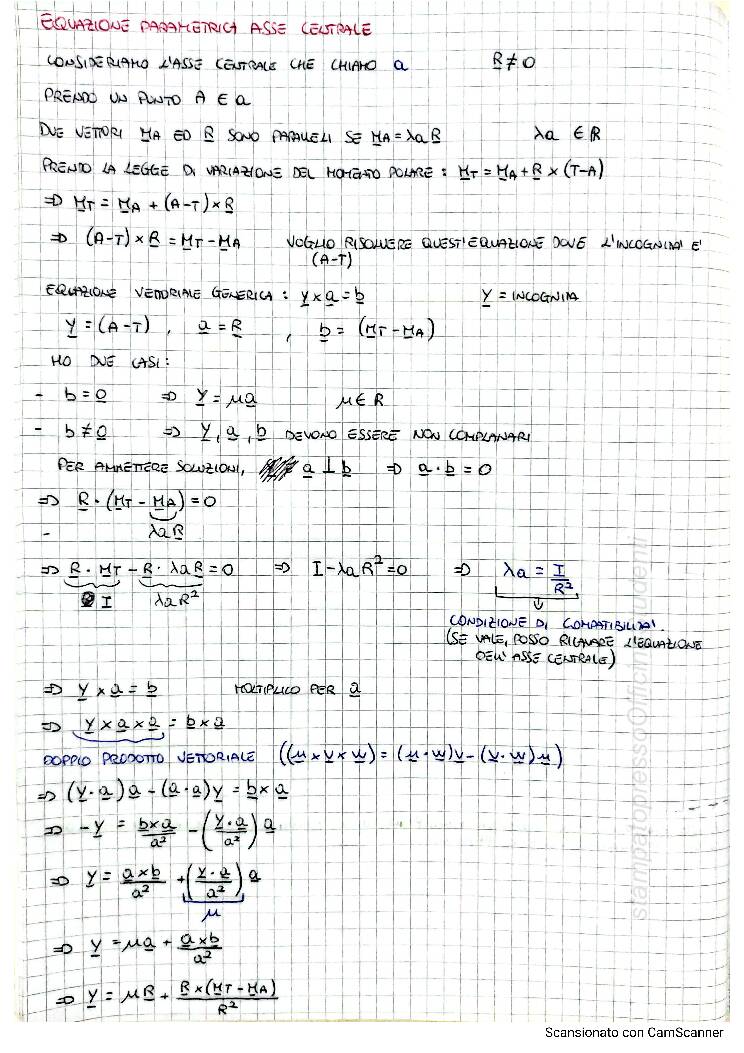 EQUAZIONE PARAMETRICA ASSE CENTRALE
CONSIDERIAMO L'ASSE CENTRALE CHE CHIAMO a R ≠ 0
PRENDO UN PUNTO A ∈ a
DUE VETTORI MA ED R SONO PARALLELI SE MA = λa R λa ∈ R
PRENDO LA LEGGE DI VARIAZIONE DEL MOMENTO POLARE : MT = MA + R × (T-A)
⇒ MT = MA + (A-T) × R
⇒ (A-T) × R = MT - MA VOGLIO RISOLVERE QUEST'EQUAZIONE DOVE L'INCOGNITA E'
(A-T)
EQUAZIONE VETTORIALE GENERICA : y × a = b y = INCOGNITA
y = (A-T) , a = R , b = (MT - MA)
HO DUE CASI :
- b = 0 ⇒ y = μa μ ∈ R
- b ≠ 0 ⇒ y, a, b DEVONO ESSERE NON COMPLANARI
PER AMMETTERE SOLUZIONI, a ⊥ b ⇒ a · b = 0
⇒ R · (MT - MA) = 0
- λa R
⇒ R · MT - R · λa R = 0 ⇒ I - λa R² = 0 ⇒ λa = I/R²
I λa R²
CONDIZIONE DI COMPATIBILITA'
(SE VALE, POSSO RICAVARE L'EQUAZIONE
DELL'ASSE CENTRALE)
⇒ y × a = b MOLTIPLICO PER a
⇒ y × a × a = b × a
DOPPIO PRODOTTO VETTORIALE ((u × v × w) = (u · w)v - (v · w)u)
⇒ (y · a) a - (a · a) y = b × a
⇒ - y = b × a/a² - (y · a/a²) a
⇒ y = a × b/a² + (y · a/a²) a
μ
⇒ y = μa + a × b/a²
⇒ y = μR + R × (MT - MA)/R²
stampatopressoOfficineStudenti
Scansionato con CamScanner